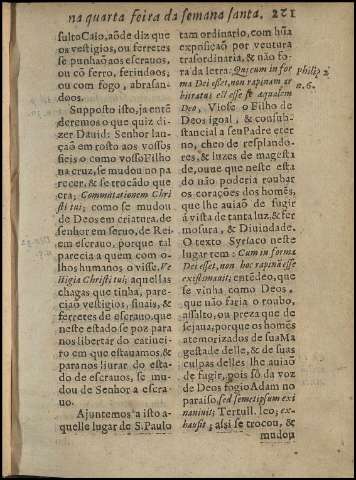 na quarta feira da semana santa. 221
sulto Caio, aõde diz que
os vestigios, ou ferretes
se punhaõ aos escrauos,
ou cõ ferro, ferindoos;
ou com fogo, abrasan-
doos.
Supposto isto, ja entẽ
deremos o que quiz di-
zer Dauid: Senhor lan-
çaõ em rosto aos vossos
fieis o como vosso Filho
na cruz, se mudou no pa
recer, & se trocàdo que
era; Commutationem Chri
sti tui; como se mudou
de Deos em criatura, de
senhor em seruo, de Rei
em escrauo, porque tal
parecia a quem com o-
lhos humanos o visse, Ve
stigia Christi tui; aquellas
chagas que tinha, pare-
ciaõ vestigios, sinais, &
ferretes de escrauo, que
neste estado se poz para
nos libertar do catiuei-
ro em que estauamos, &
para nos liurar do esta-
do de escrauos, se mu-
dou de Senhor a escra-
uo.
Ajuntemos a isto a-
quelle lugar de S. Paulo
tam ordinario, com hũa
exposiçaõ por ventura
trasordinaria, & naõ fo-
ra da letra: Qui cum in for
ma Dei esset, non rapinam ar
bitratus est esse se æqualem
Deo, Viose o Filho de
Deos igoal, & consub-
stancial a seu Padre eter
no, cheo de resplando-
res, & luzes de magesta
de, ouue que neste esta
do não poderia roubar
os corações dos homẽs,
que lhe auiaõ de fugir
á vista de tanta luz, & fer
mosura, & Diuindade.
O texto Syriaco neste
lugar tem: Cum in forma
Dei esset, non hoc rapinã esse
existimauit; entẽdeo, que
se vinha como Deos,
que não faria o roubo,
assalto, ou preza que de
sejaua; porque os homẽs
atemorizados de sua Ma
gestade delle, & de suas
culpas delles lhe auiaõ
de fugir, pois só da voz
de Deos fogio Adam no
paraiso, sed semetipsum exi
naniuit; Tertull. leo; ex-
hausit; assi se trocou, &
mudou
Philip. 2
n. 6.